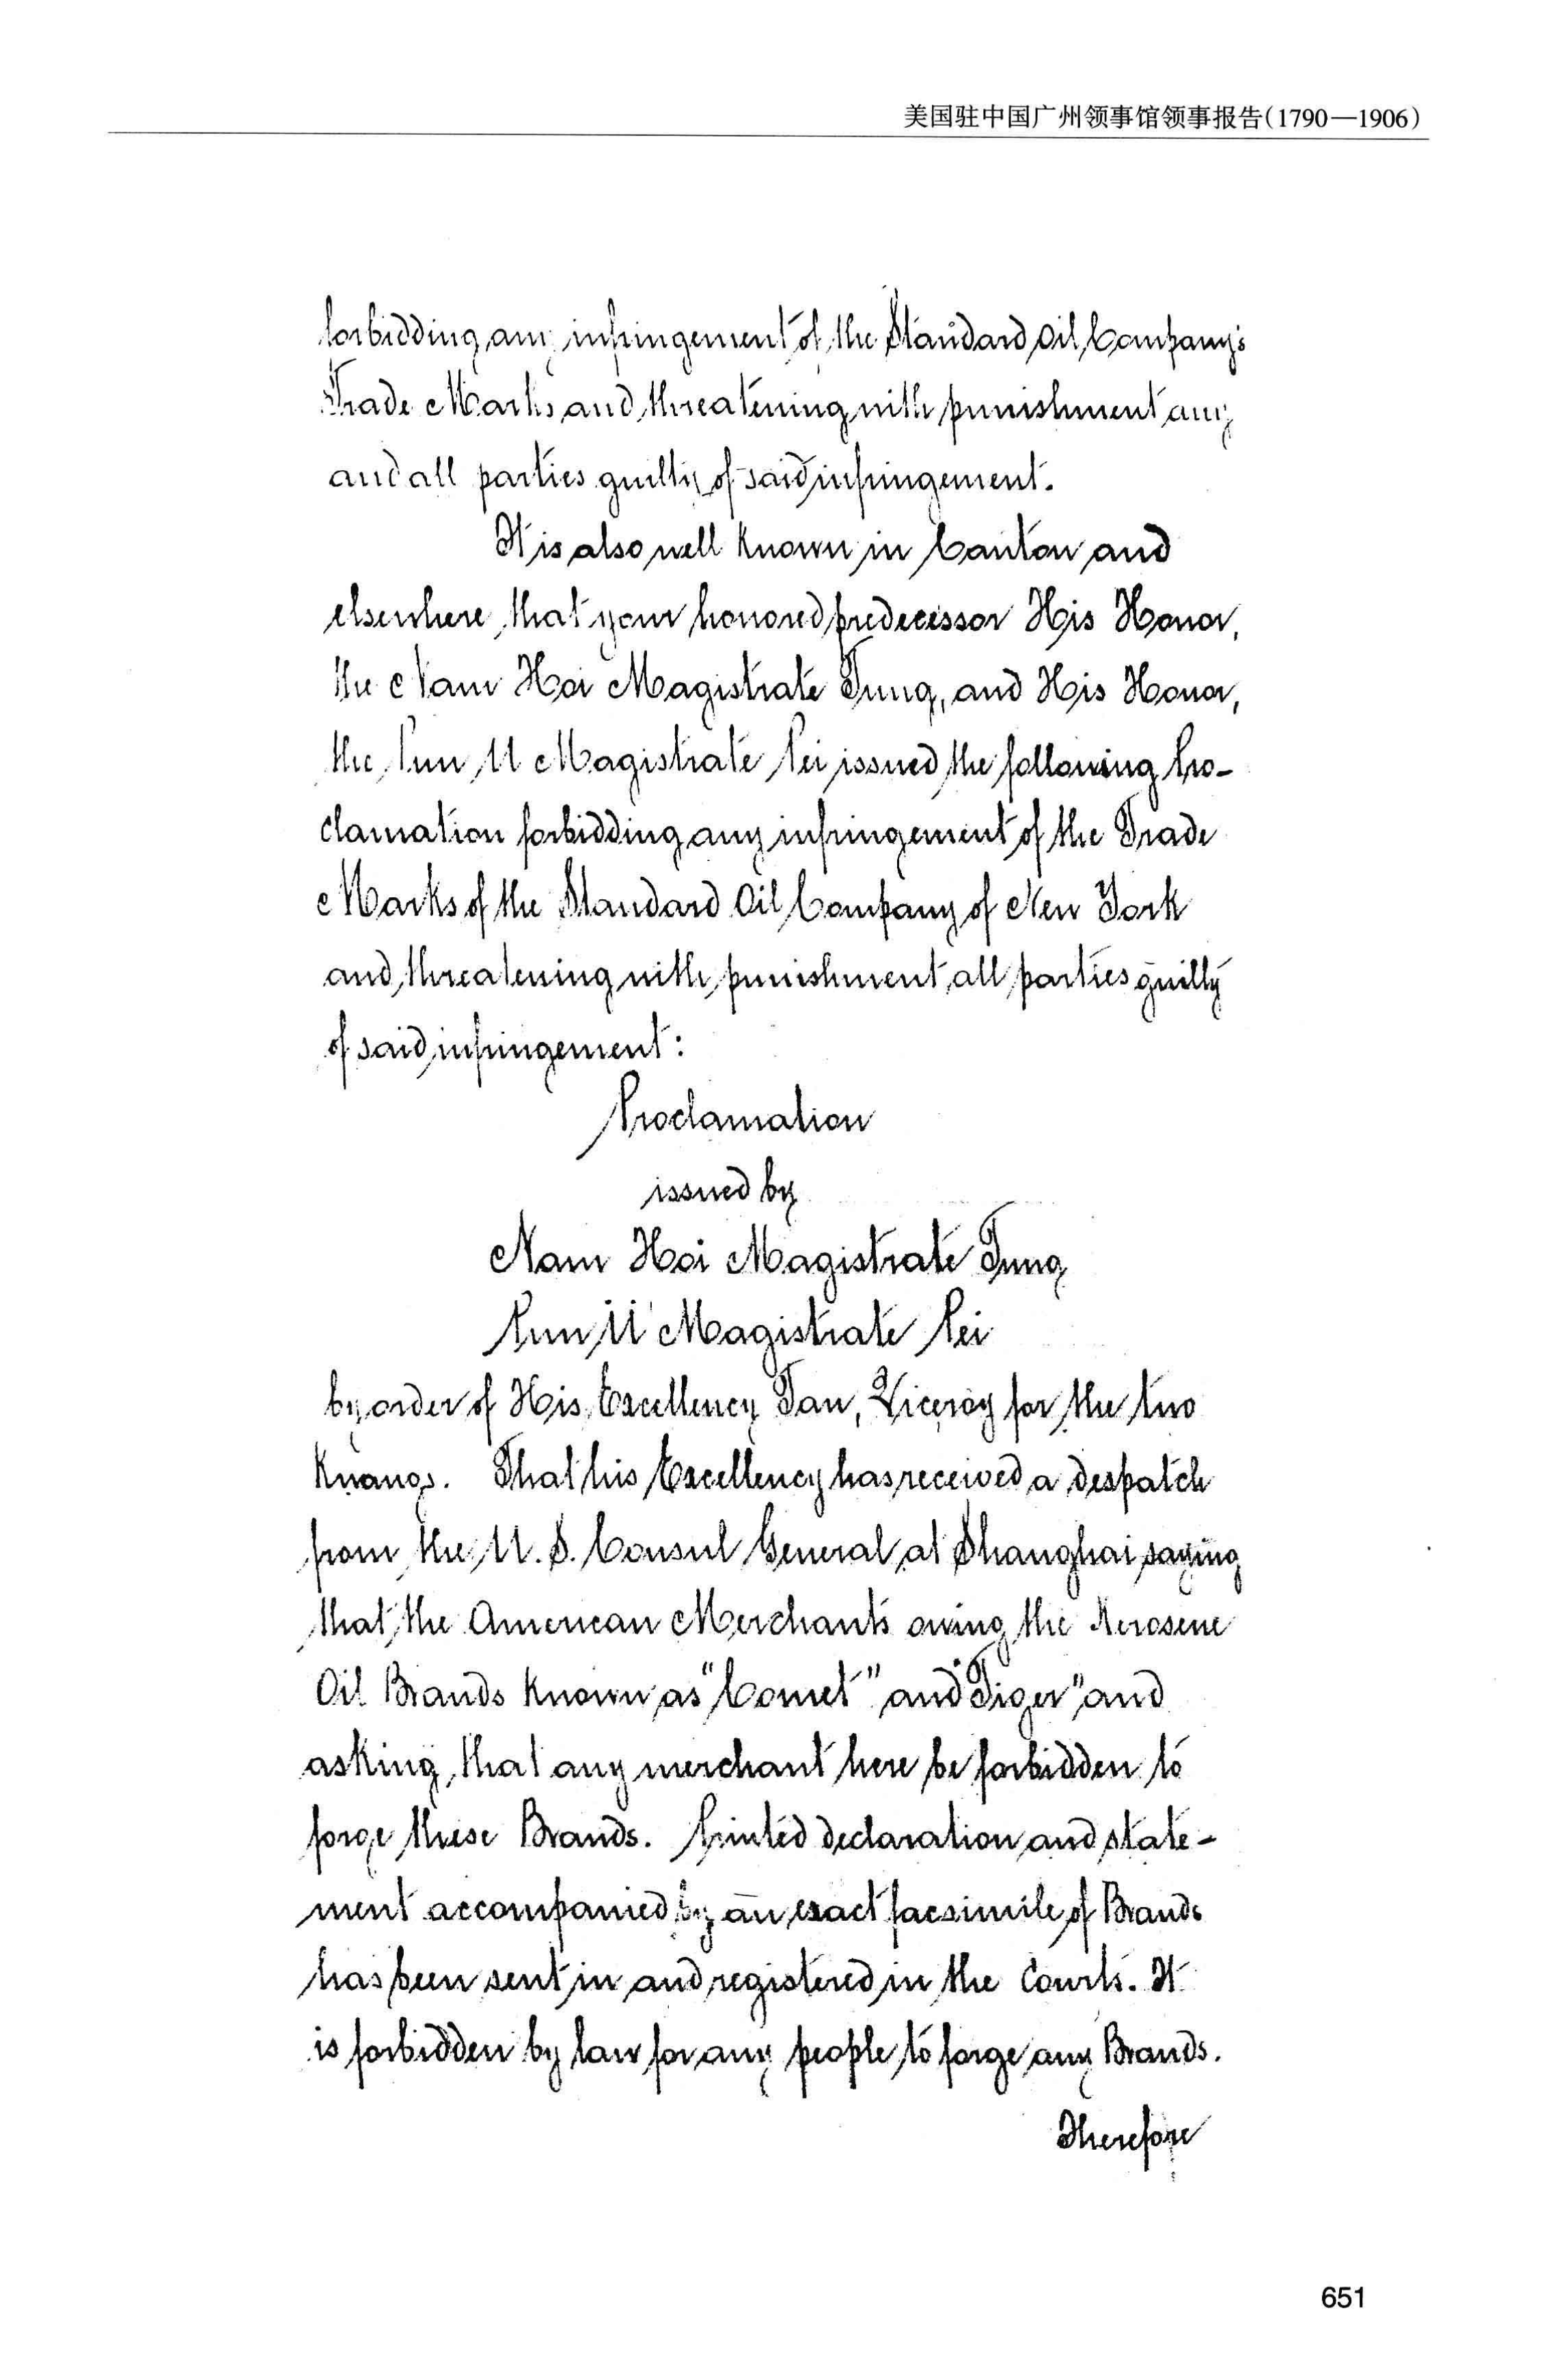 美国驻中国广州领事馆领事报告(1790—1906)
forbidding any infringement of the Standard Oil Company's
Trade Marks and threatening with punishment any
and all parties guilty of said infringement.
It is also well known in Canton and
elsewhere that your honored predecessor His Honor,
the Nam Hoi Magistrate Tung, and His Honor,
the Pun U Magistrate Pei issued the following Pro-
clamation forbidding any infringement of the Trade
Marks of the Standard Oil Company of New York
and threatening with punishment all parties guilty
of said infringement:
Proclamation
issued by
Nam Hoi Magistrate Tung
Pun U Magistrate Pei
by order of His Excellency Tan, Viceroy for the two
Kuangs. That his Excellency has received a despatch
from the U. S. Consul General at Shanghai saying
that the American Merchants owing the Kerosene
Oil Brands known as "Comet" and "Tiger" and
asking that any merchant here be forbidden to
forge these Brands. Printed declaration and state-
ment accompanied by an exact facsimile of Brands
has been sent in and registered in the Courts. It
is forbidden by law for any people to forge any Brands.
Therefore
651